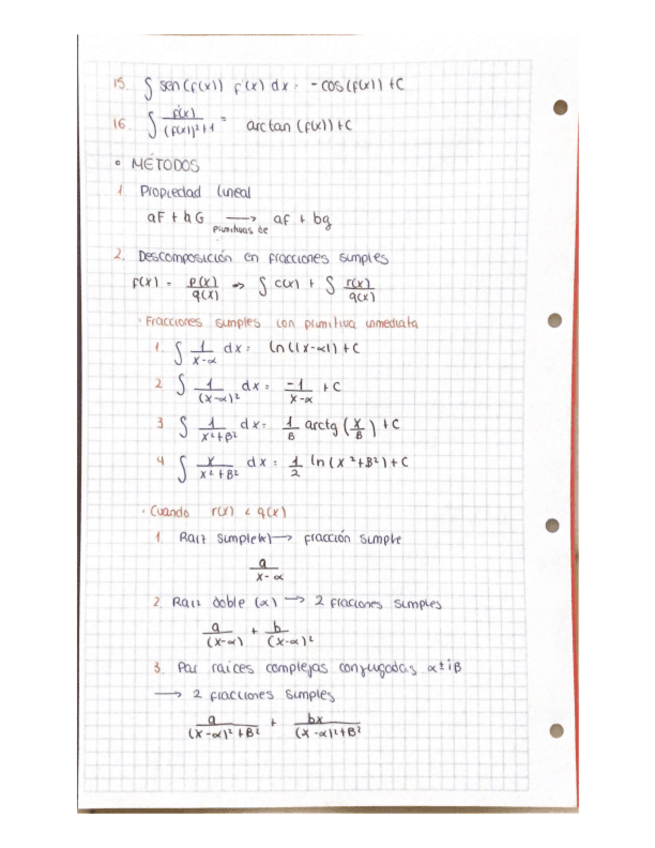 15. ∫ sen(f(x)) f'(x) dx = -cos(f(x)) + C
16. ∫ f'(x)/((f(x))²+1 = arctan (f(x)) + C
• MÉTODOS
1. Propiedad lineal
aF + bG → af + bg
primitivas de
2. Descomposición en fracciones simples
f(x) = p(x)/q(x) => ∫ c(x) + ∫ r(x)/q(x)
· Fracciones simples con primitiva inmediata
1. ∫ 1/(x-α) dx = ln(|x-α|) + C
2 ∫ 1/(x-α)² dx = -1/(x-α) + C
3 ∫ 1/(x²+β²) dx = 1/β arctg (x/β) + C
4 ∫ x/(x²+β²) dx = 1/2 ln(x²+β²) + C
· Cuando r(x) < q(x)
1. Raíz simple(α) → fracción simple
a/(x-α)
2. Raíz doble (α) → 2 fraciones simples
a/(x-α) + b/(x-α)²
3. Par raíces complejas conjugadas α±iβ
→ 2 fracciones simples
a/((x-α)²+β²) + bx/((x-α)²+β²)